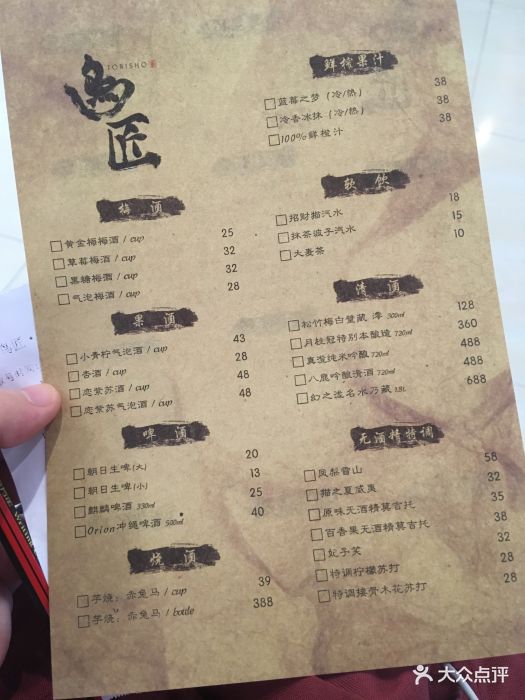 鸟匠
TORISHO
梅酒
黄金梅梅酒 / cup 25
草莓梅酒 / cup 32
黑糖梅酒 / cup 32
气泡梅酒 / cup 28
果酒
小青柠气泡酒 / cup 43
杏酒 / cup 28
恋紫苏酒 / cup 48
恋紫苏气泡酒 / cup 48
啤酒
朝日生啤(大) 20
朝日生啤(小) 13
麒麟啤酒 330ml 25
Orion冲绳啤酒 500ml 40
烧酒
芋烧: 赤兔马 / cup 39
芋烧: 赤兔马 / bottle 388
鲜榨果汁
蓝莓之梦 (冷/热) 38
冷香冰抹 (冷/热) 38
100%鲜橙汁 38
软饮
招财猫汽水 18
抹茶波子汽水 15
大麦茶 10
清酒
松竹梅白壁藏 澪 300ml 128
月桂冠特别本酿造 720ml 360
真澄纯米吟酿 720ml 488
八鹿吟酿清酒 720ml 488
幻之泷名水乃藏 1.8L 688
无酒精特调
凤梨雪山 58
猫之夏威夷 32
原味无酒精莫吉托 35
百香果无酒精莫吉托 38
妃子笑 32
特调柠檬苏打 28
特调接骨木花苏打 28
大众点评